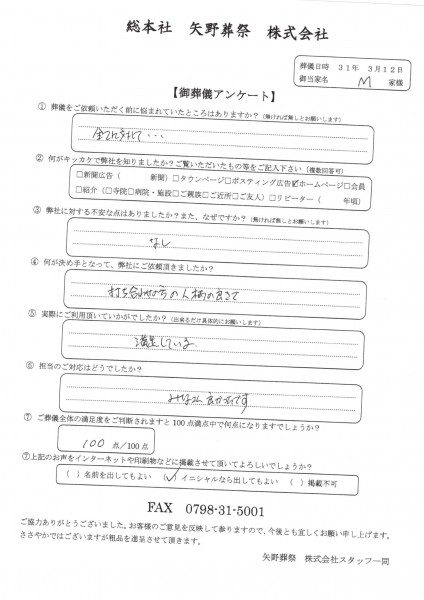 総本社 矢野葬祭 株式会社
葬儀日時 31年 3月12日
御当家名 M 家様
【御葬儀アンケート】
① 葬儀をご依頼いただく前に悩まれていたところはありますか?(無ければ無しとお願いします)
全てに於いて・・・
② 何がキッカケで弊社を知りましたか?ご覧いただいたもの等をご記入下さい(複数回答可)
□新聞広告( 新聞)□タウンページ□ポスティング広告☑ホームページ□会員
□紹介(□寺院□病院・施設□ご親族□ご近所□ご友人)□リピーター( 年頃)
③ 弊社に対する不安な点はありましたか?また、なぜですか?(無ければ無しとお願いします)
なし
④ 何が決め手となって、弊社にご依頼頂きましたか?
打ち合わせの方の人柄の良さで
⑤ 実際にご利用頂いていかがでしたか?(出来るだけ具体的にお願いします)
満足している
⑥ 担当のご対応はどうでしたか?
みなさん良かったです
⑦ ご葬儀全体の満足度をご判断されますと100点満点中で何点になりますでしょうか?
100 点/100点
⑦上記のお声をインターネットや印刷物などに掲載させて頂いてよろしいでしょうか?
( )名前を出してもよい (✓)イニシャルなら出してもよい ( )掲載不可
FAX 0798-31-5001
ご協力ありがとうございました。お客様のご意見を反映して参りますので、今後とも宜しくお願い申し上げます。
ささやかではございますが粗品を進呈させて頂きます。
矢野葬祭 株式会社スタッフ一同